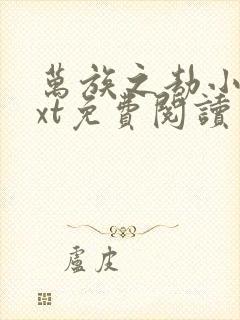 萬族之劫小
xt免費閱讀
盧皮